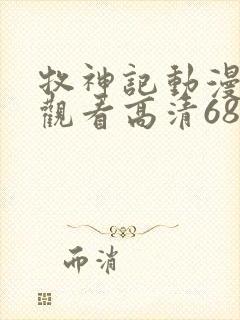 牧神記動漫
觀看高清68
而消